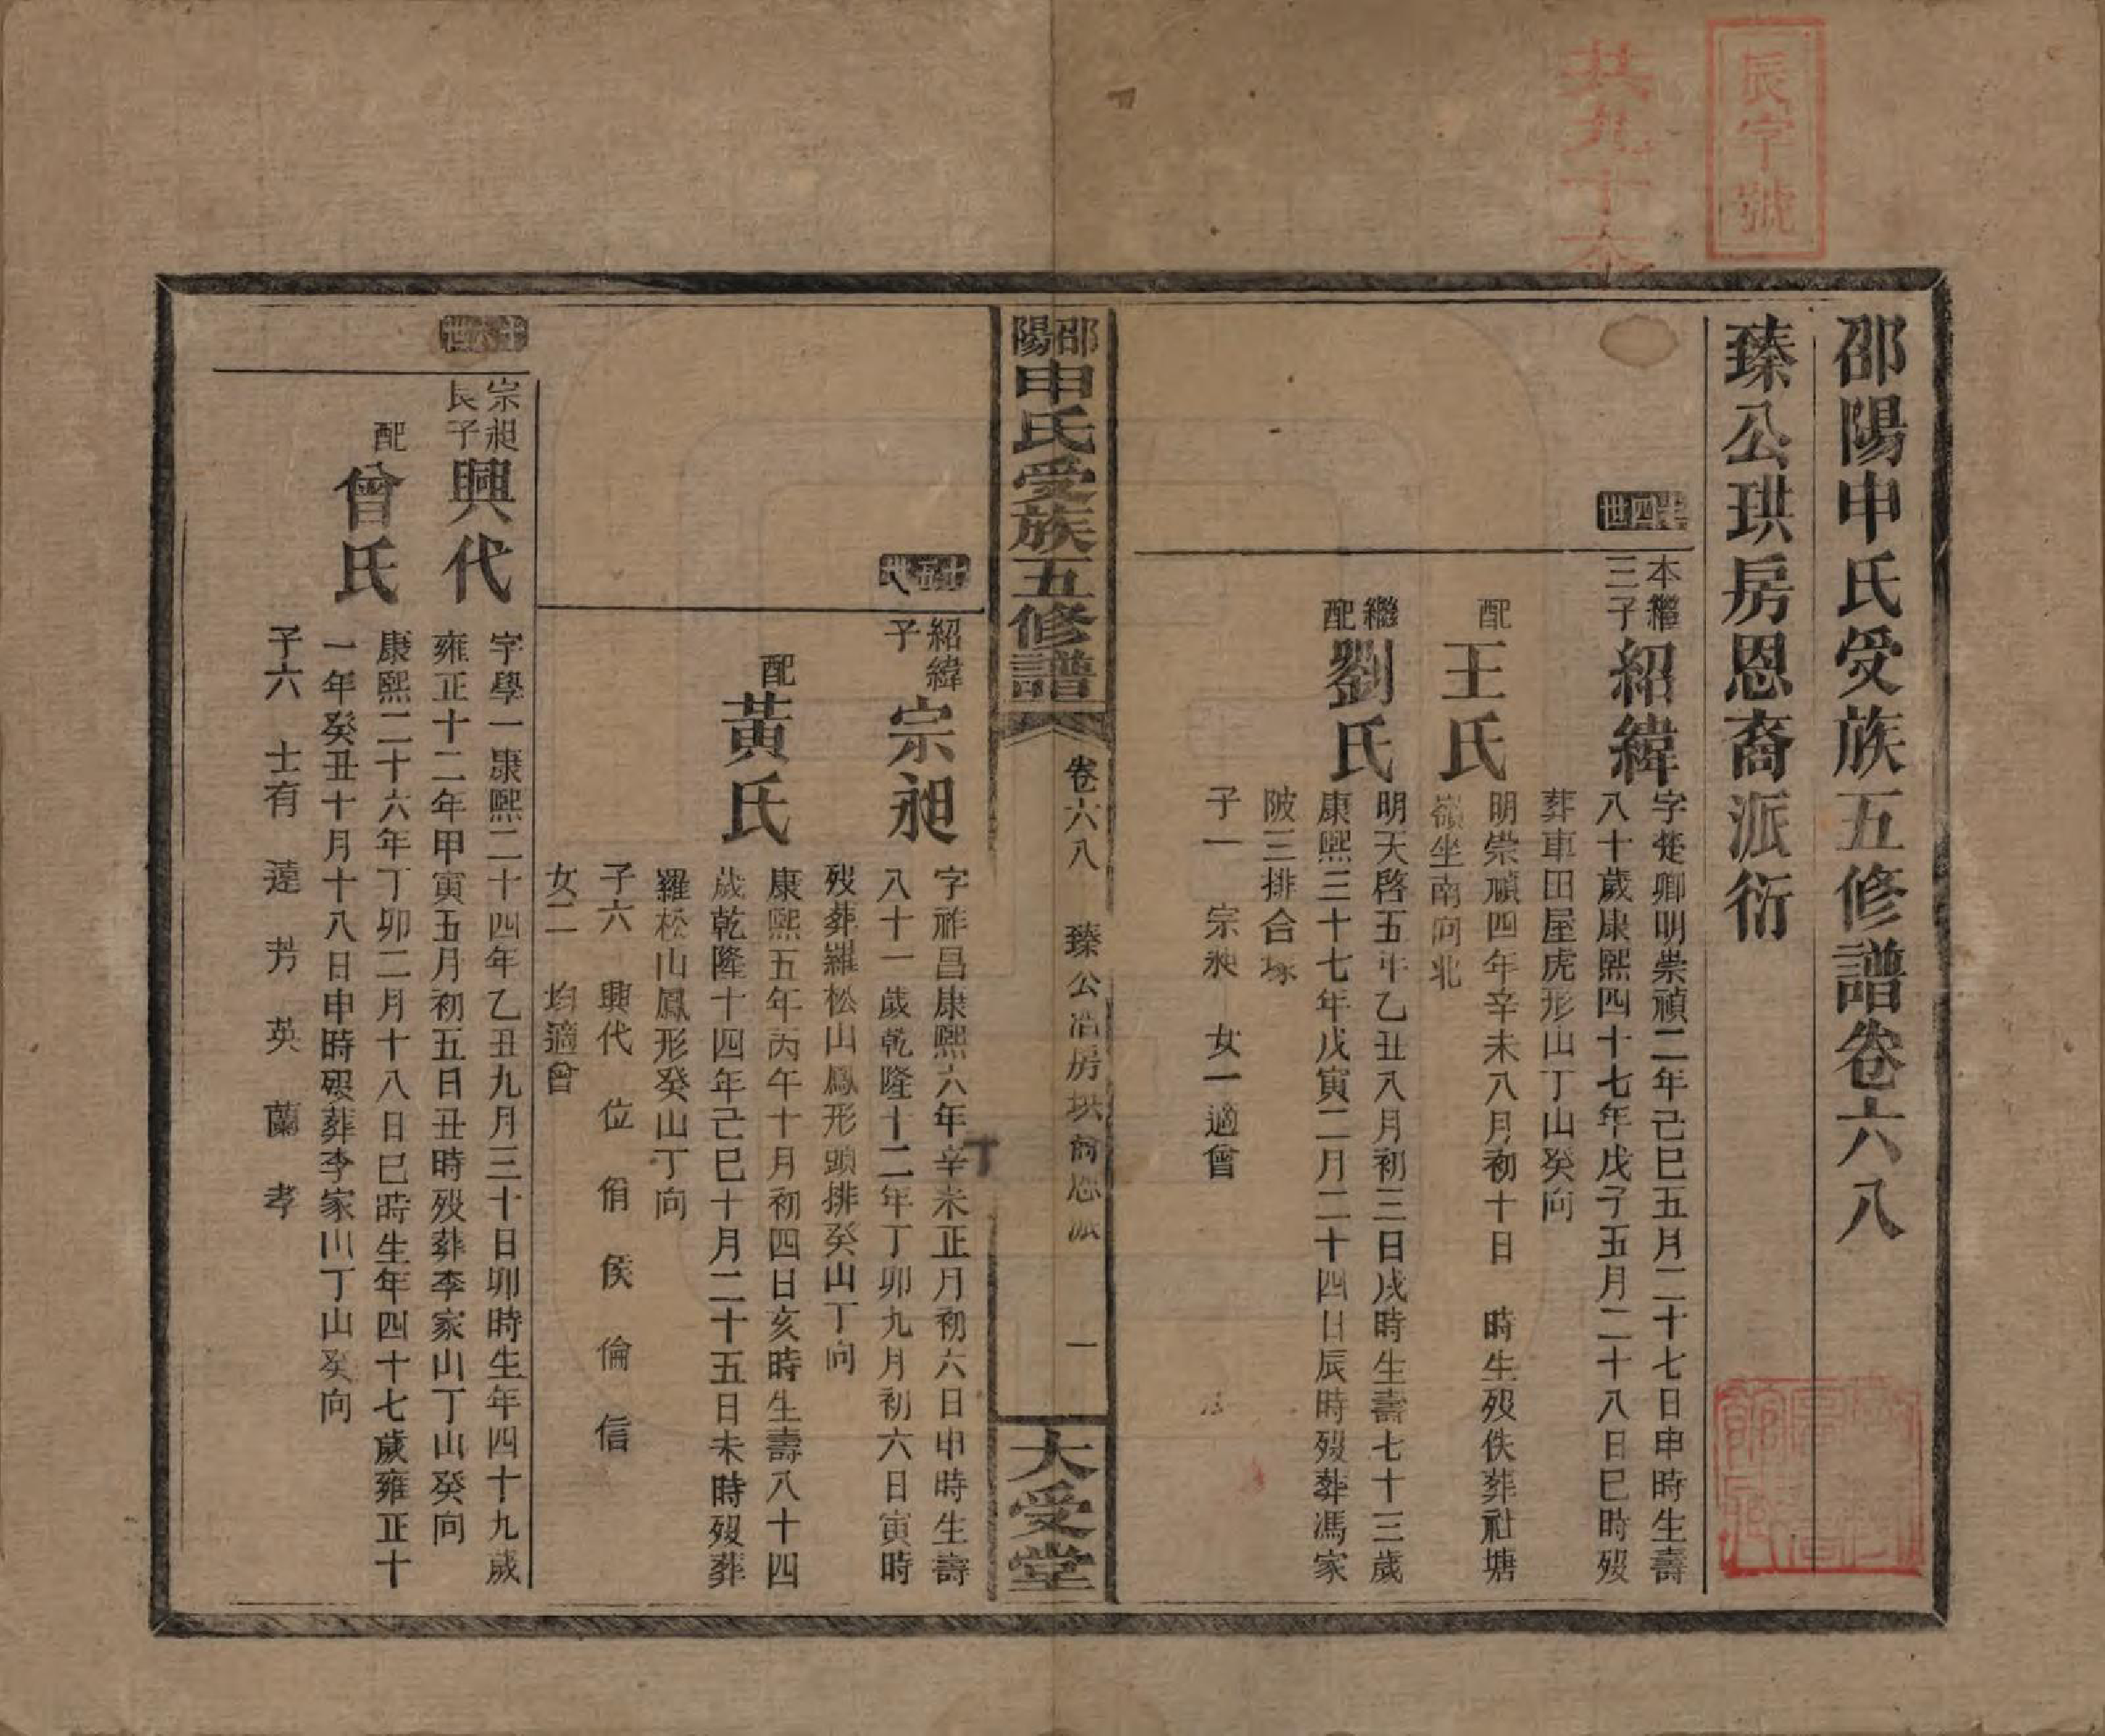 辰字號
共九十本
邵陽申氏受族五修譜卷六八
臻公珙房恩裔派衍
十四世
本繼三子
紹緯
字楚卿明崇禎二年己巳五月二十七日申時生壽
八十歲康熙四十七年戊子五月二十八日巳時歿
葬車田屋虎形山丁山癸向
配
王氏
明崇禎四年辛未八月初十日　時生歿佚葬社塘
嶺坐南向北
繼配
劉氏
明天啓五年乙丑八月初三日戌時生壽七十三歲
康熙三十七年戊寅二月二十四日辰時歿葬馮家
陂三排合塚
子一　宗昶　女一適曾
邵陽申氏受族五修譜
卷六八　臻公浩房珙裔恩派　一
大受堂
十五世
紹緯子
宗昶
字祚昌康熙六年辛未正月初六日申時生壽
八十一歲乾隆十二年丁卯九月初六日寅時
歿葬羅松山鳳形頭排癸山丁向
配
黃氏
康熙五年丙午十月初四日亥時生壽八十四
歲乾隆十四年己巳十月二十五日未時歿葬
羅松山鳳形癸山丁向
子六　興代　位　佾　侯　倫　信
女二　均適曾
十六世
宗昶長子
興代
字學一康熙二十四年乙丑九月三十日卯時生年四十九歲
雍正十二年甲寅五月初五日丑時歿葬李家山丁山癸向
配
曾氏
康熙二十六年丁卯二月十八日巳時生年四十七歲雍正十
一年癸丑十月十八日申時歿葬李家山丁山癸向
子六　士有　達　芳　英　蘭　孝